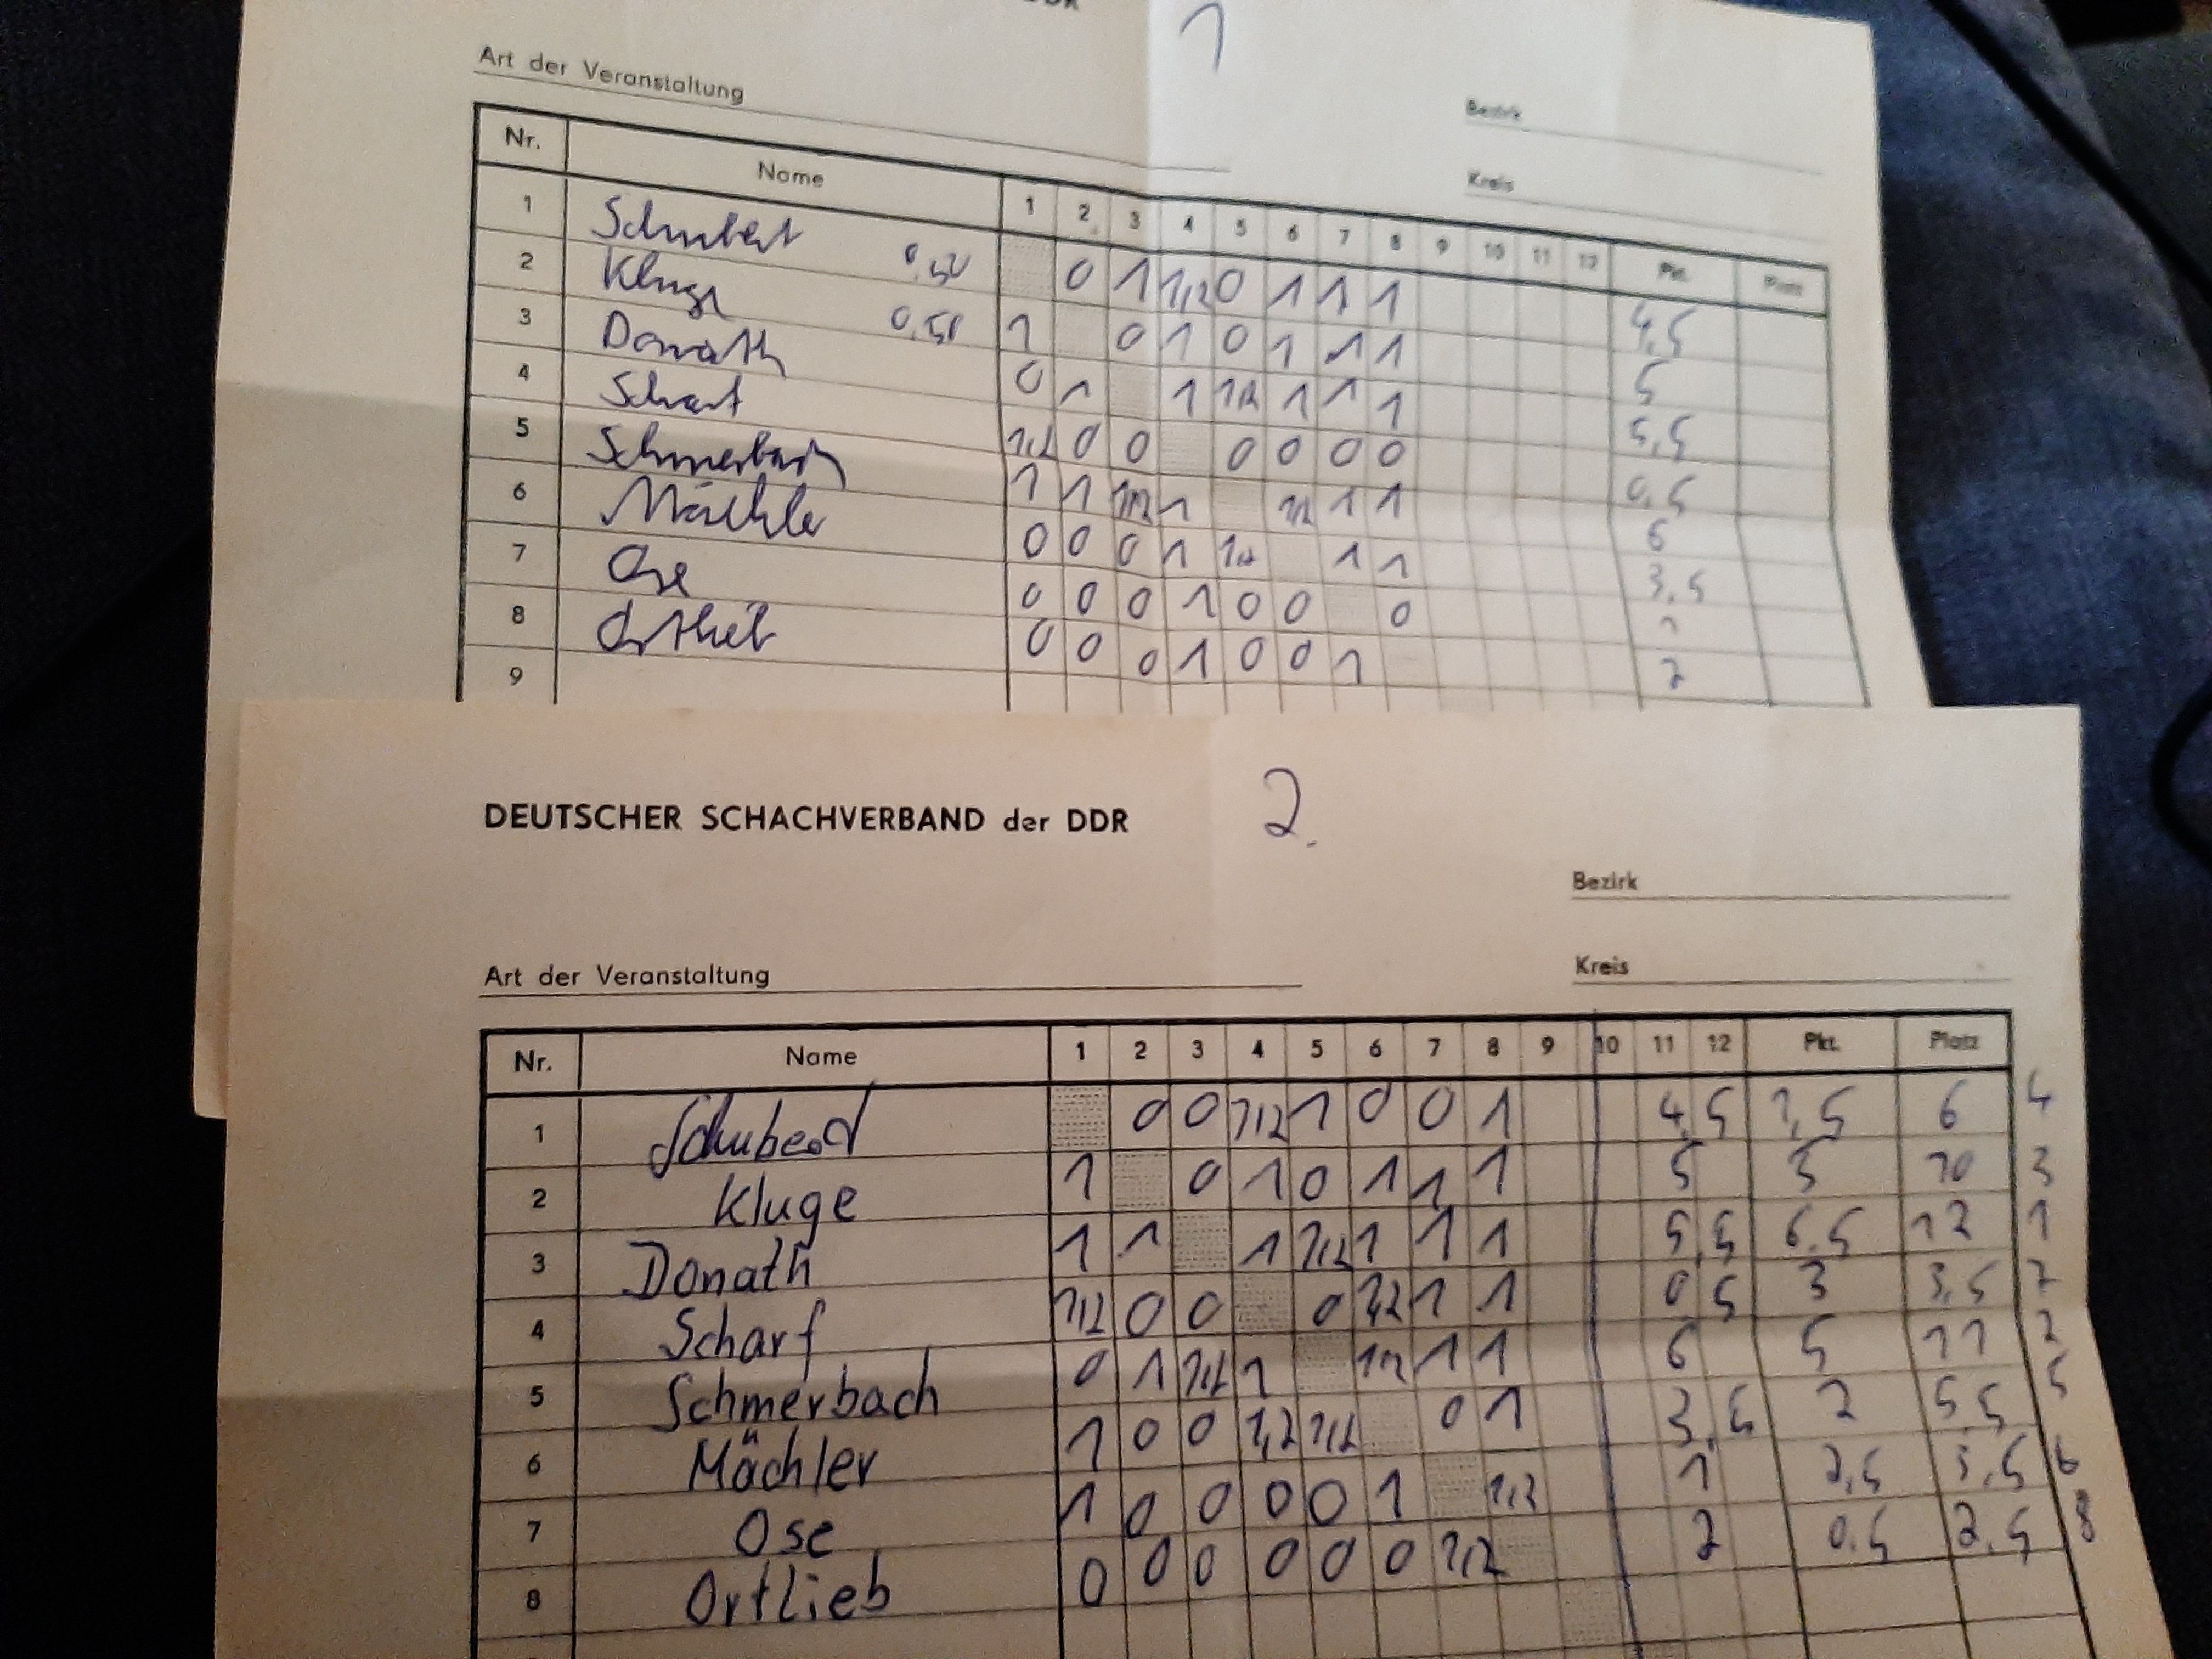 1
Art der Veranstaltung
Bezirk
Kreis
Nr. Name 1 2 3 4 5 6 7 8 9 10 11 12 Pkt. Platz
1 Schubert 0 1 1/2 0 1 1 1 4,5
2 Kluge 1 0 1 0 1 1 1 5
3 Donath 0 1 1 1/2 1 1 1 5,5
4 Scharf 1/2 0 0 0 0 0 0 0,5
5 Schmerbach 1 1 1/2 1 1/2 1 1 6
6 Mächler 0 0 0 1 1/2 1 1 3,5
7 Ose 0 0 0 1 0 0 0 1
8 Ortlieb 0 0 0 1 0 0 1 2
9
DEUTSCHER SCHACHVERBAND der DDR 2.
Bezirk
Art der Veranstaltung Kreis
Nr. Name 1 2 3 4 5 6 7 8 9 10 11 12 Pkt. Platz
1 Schuberd 0 0 1/2 1 0 0 1 4,5 1,5 6 4
2 Kluge 1 0 1 0 1 1 1 5 5 10 3
3 Donath 1 1 1 1/2 1 1 1 5,5 6,5 12 1
4 Scharf 1/2 0 0 0 1/2 1 1 0,5 3 3,5 7
5 Schmerbach 0 1 1/2 1 1/2 1 1 6 5 11 2
6 Mächler 1 0 0 1/2 1/2 0 1 3,5 2 5,5 5
7 Ose 1 0 0 0 0 1 1/2 1 2,5 3,5 6
8 Ortlieb 0 0 0 0 0 0 1/2 2 0,5 2,5 8